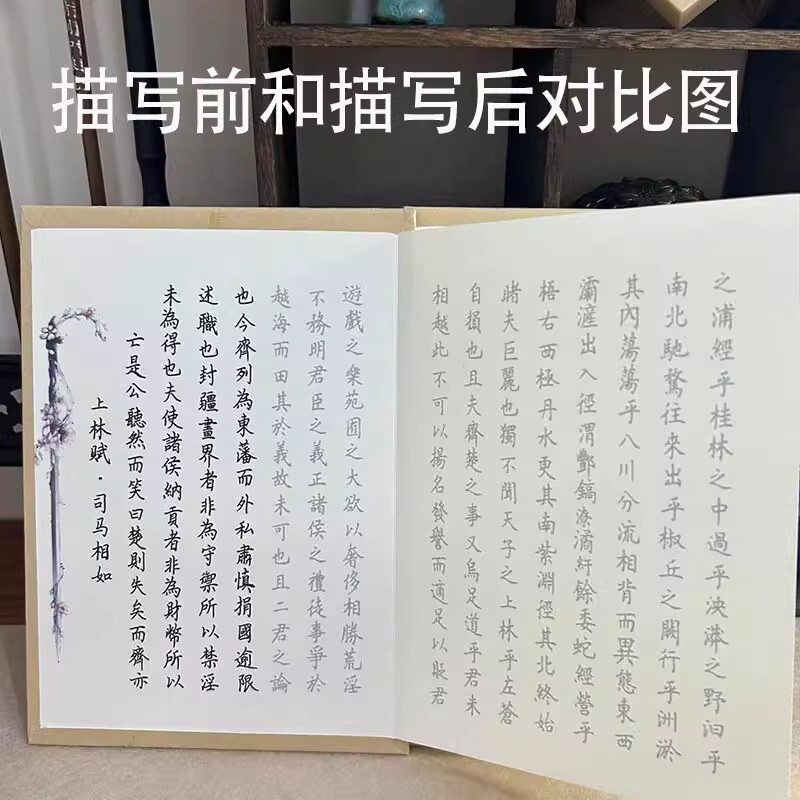 描写前和描写后对比图
上林赋·司马相如
亡是公聽然而笑曰楚則失矣而齊亦
未為得也夫使諸侯納貢者非為財幣所以
述職也封疆畫界者非為守禦所以禁淫
也今齊列為東藩而外私肅慎捐國逾限
越海而田其於義故未可也且二君之論
不務明君臣之義正諸侯之禮徒事爭於
遊戲之樂苑囿之大欲以奢侈相勝荒淫
相越此不可以揚名發譽而適足以貶君
自損也且夫齊楚之事又烏足道乎君未
睹夫巨麗也獨不聞天子之上林乎左蒼
梧右西極丹水更其南紫淵徑其北終始
灞滻出入徑渭酆鎬潦潏紆餘委蛇經營乎
其內蕩蕩乎八川分流相背而異態東西
南北馳騖往來出乎椒丘之闕行乎洲淤
之浦經乎桂林之中過乎泱漭之野汩乎